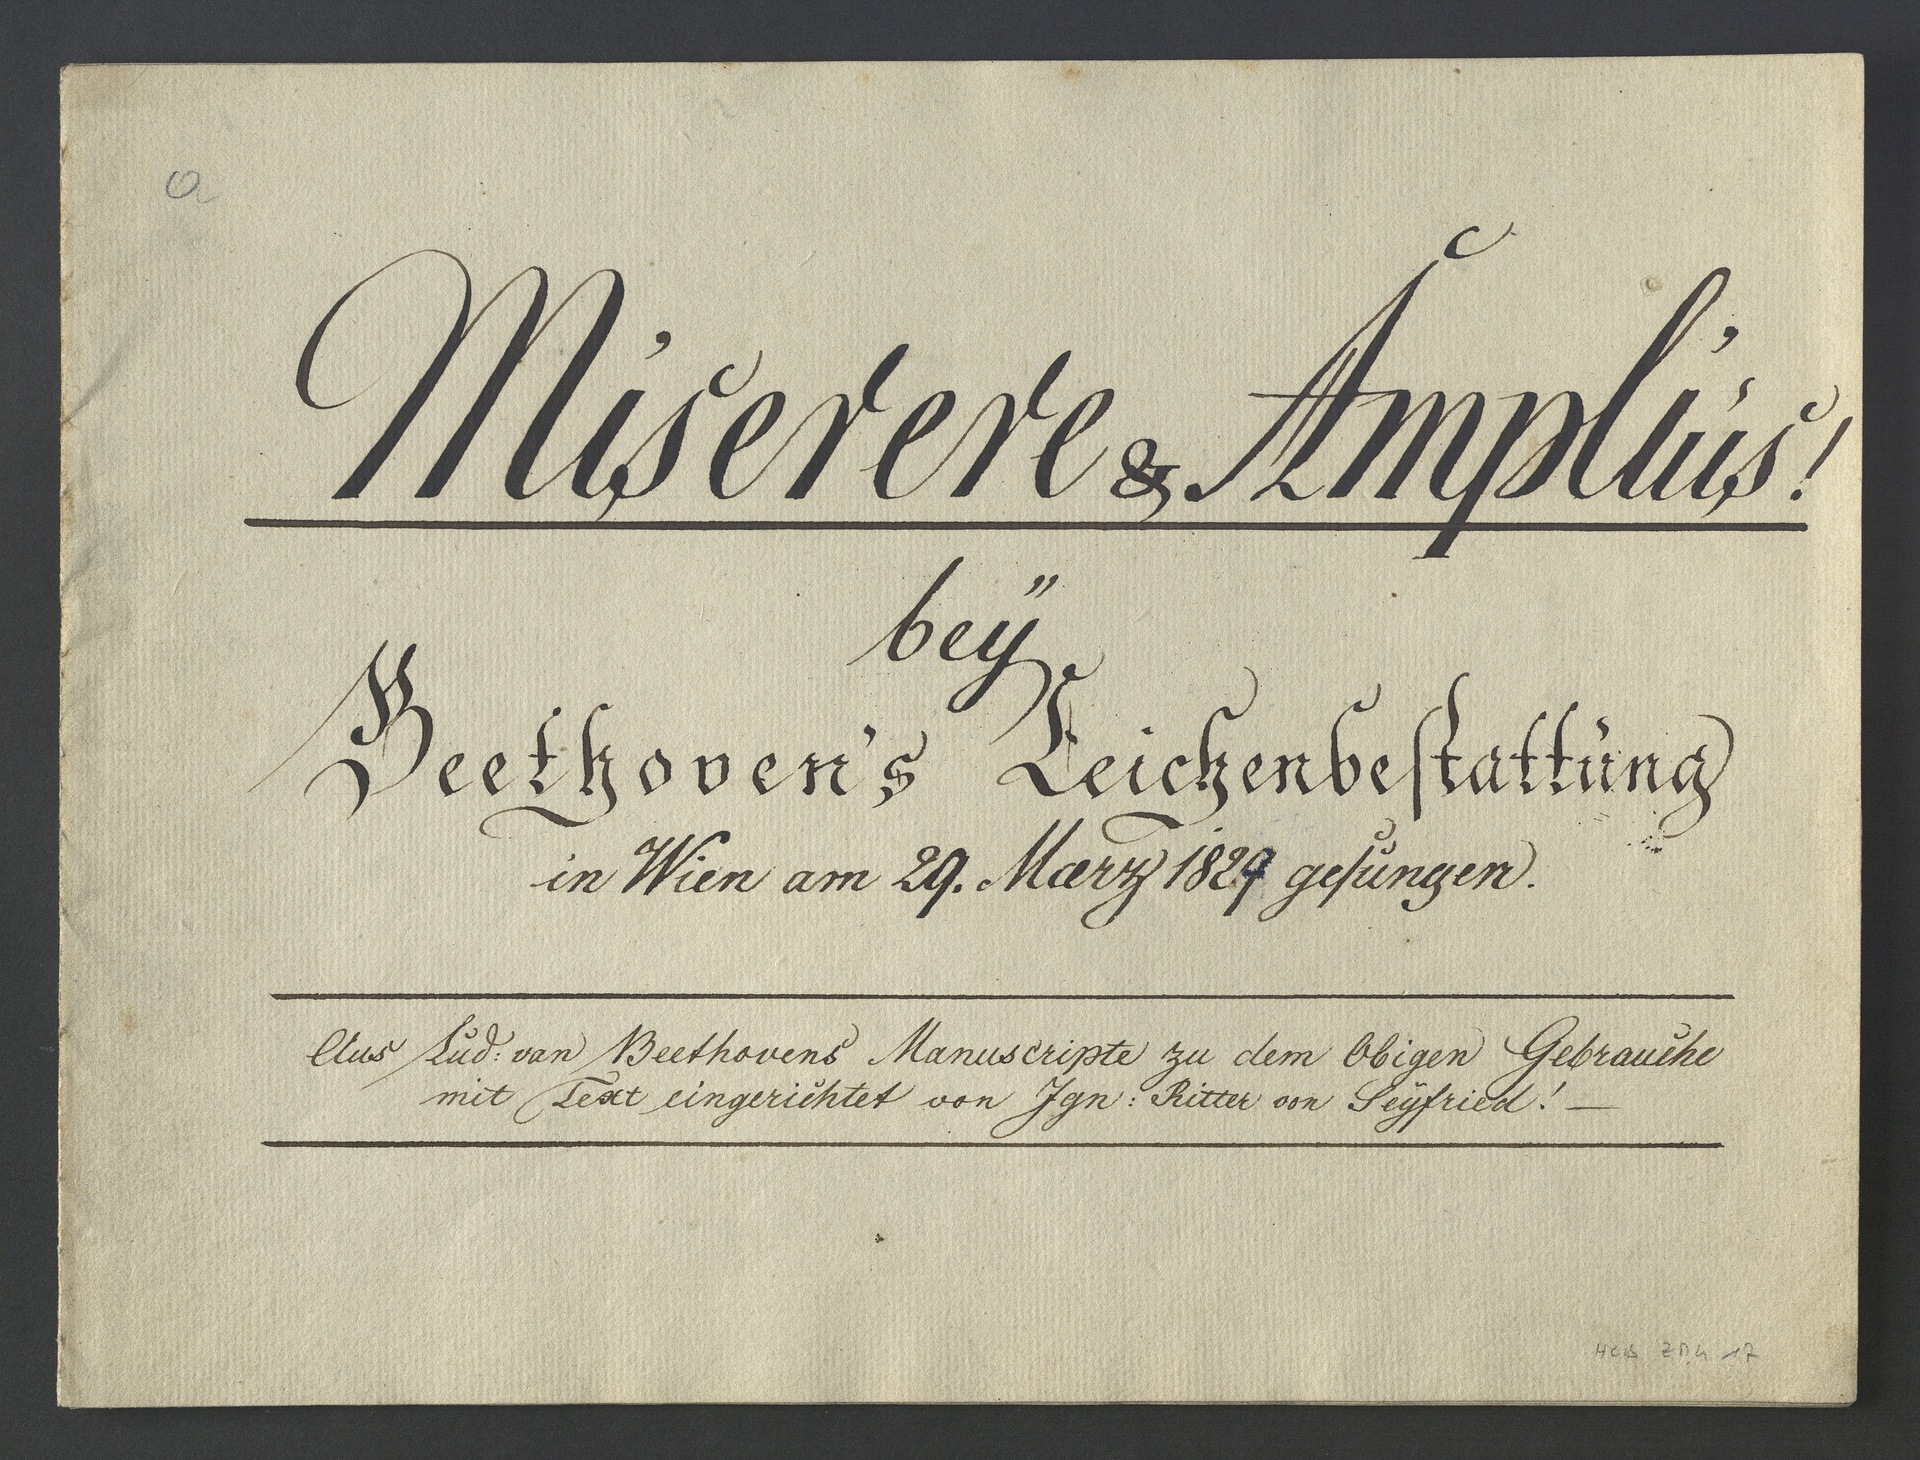 a
Miserere & Amplius!
bey
Beethoven's Leichenbestattung
in Wien am 29. Maerz 1827 gesungen.
Aus Lud: van Beethovens Manuscripte zu dem Obigen Gebrauche
mit Text eingerichtet von Ign: Ritter von Seÿfried! —
HCB ZMh 17